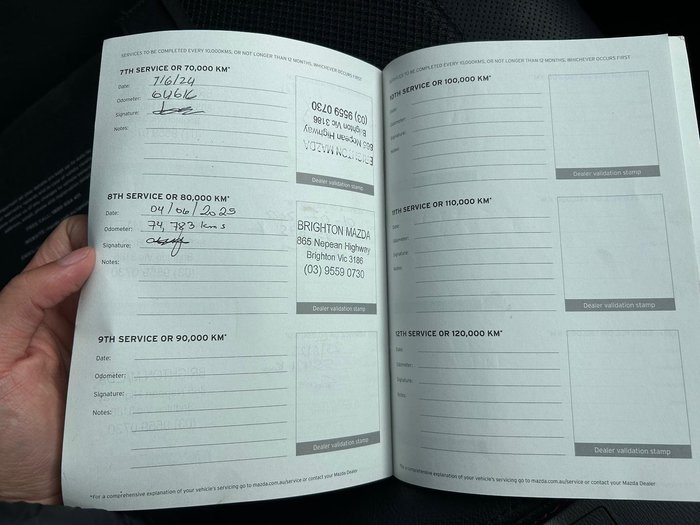 SERVICES TO BE COMPLETED EVERY 10,000KMS, OR NOT LONGER THAN 12 MONTHS, WHICHEVER OCCURS FIRST
7TH SERVICE OR 70,000 KM*
Date: 7/6/24
Odometer: 64616
Signature:
Notes:
BRIGHTON MAZDA
865 Nepean Highway
Brighton Vic 3186
(03) 9559 0730
Dealer validation stamp
8TH SERVICE OR 80,000 KM*
Date: 04/06/2025
Odometer: 74,783 kms
Signature:
Notes:
BRIGHTON MAZDA
865 Nepean Highway
Brighton Vic 3186
(03) 9559 0730
Dealer validation stamp
9TH SERVICE OR 90,000 KM*
Date:
Odometer:
Signature:
Notes:
Dealer validation stamp
*For a comprehensive explanation of your vehicle's servicing go to mazda.com.au/service or contact your Mazda Dealer
SERVICES TO BE COMPLETED EVERY 10,000KMS, OR NOT LONGER THAN 12 MONTHS, WHICHEVER OCCURS FIRST
10TH SERVICE OR 100,000 KM*
Date:
Odometer:
Signature:
Notes:
Dealer validation stamp
11TH SERVICE OR 110,000 KM*
Date:
Odometer:
Signature:
Notes:
Dealer validation stamp
12TH SERVICE OR 120,000 KM*
Date:
Odometer:
Signature:
Notes:
Dealer validation stamp
*For a comprehensive explanation of your vehicle's servicing go to mazda.com.au/service or contact your Mazda Dealer